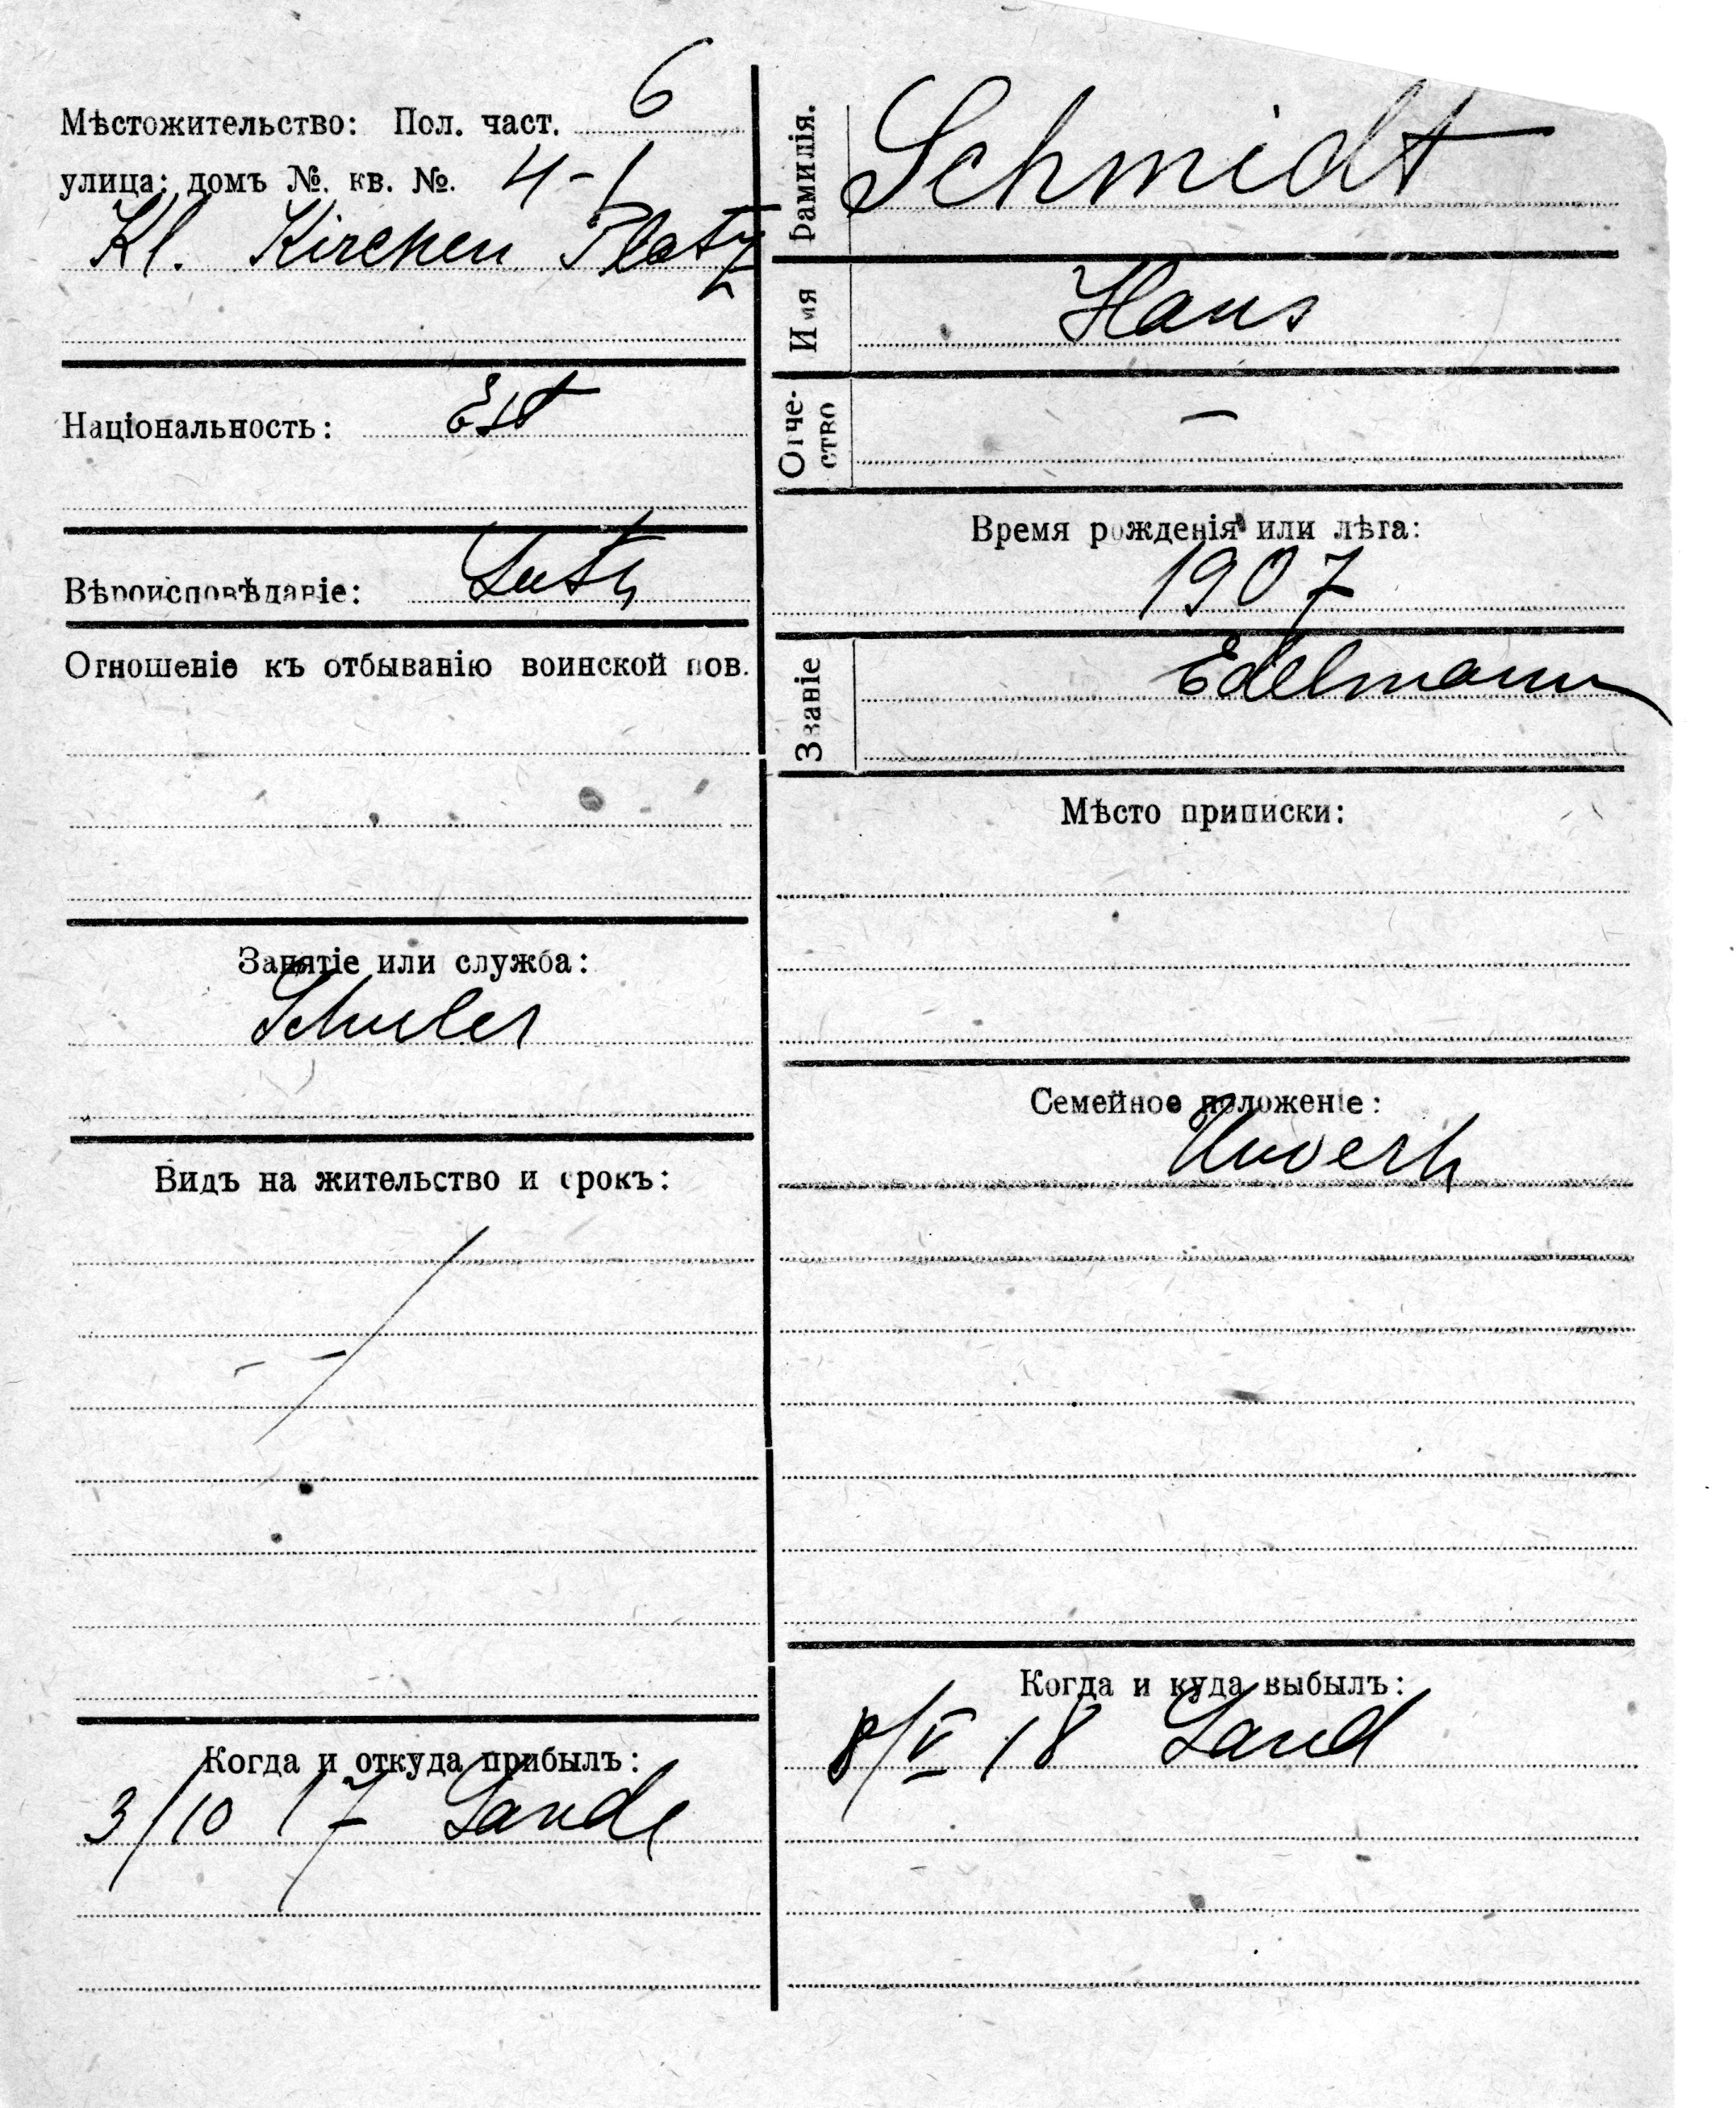 Мѣстожительство: Пол. част. 6
улица: домъ №. кв. №. 4-1
Kl. Kirchen Platz
Національность: Est
Вѣроисповѣданіе: Luth
Отношеніе къ отбыванію воинской пов.
Занятіе или служба:
Schuler
Видъ на жительство и срокъ:
Когда и откуда прибылъ:
3/10 17 Lande
Фамилія. Schmidt
Имя Hans
Отче-
ство –
Время рожденія или лѣта:
1907
Званіе Edelmann
Мѣсто приписки:
Семейное положеніе:
Unverh
Когда и куда выбылъ:
8/V 18 Land